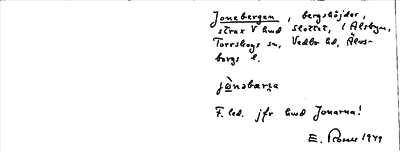 Jonebergen, bergshöjder,
strax V hwd slottet, i Älsbyn,
Torrskogs sn, Vedbo hd, Älvs-
borgs l.
jònəbærʒa
F. led. jfr hwd Jonarna!
E. Rosell 1949